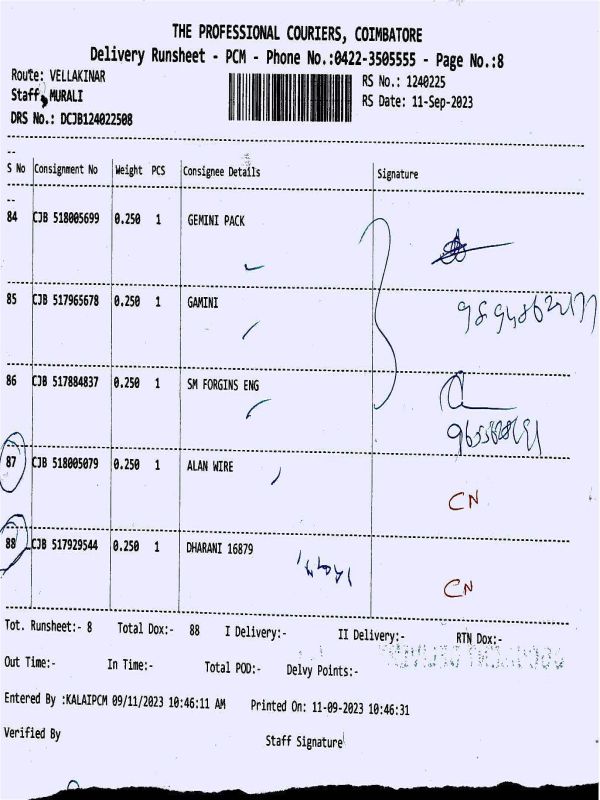 THE PROFESSIONAL COURIERS, COIMBATORE
Delivery Runsheet - PCM - Phone No.:0422-3505555 - Page No.:8
Route: VELLAKINAR
RS No.: 1240225
Staff: MURALI
RS Date: 11-Sep-2023
DRS No.: DCJB124022508
S No Consignment No Weight PCS Consignee Details Signature
84 CJB 518005699 0.250 1 GEMINI PACK
85 CJB 517965678 0.250 1 GAMINI
86 CJB 517884837 0.250 1 SM FORGINS ENG
87 CJB 518005079 0.250 1 ALAN WIRE
CN
88 CJB 517929544 0.250 1 DHARANI 16879
CN
Tot. Runsheet:- 8 Total Dox:- 88 I Delivery:- II Delivery:- RTN Dox:-
Out Time:- In Time:- Total POD:- Delvy Points:-
Entered By :KALAIPCM 09/11/2023 10:46:11 AM Printed On: 11-09-2023 10:46:31
Verified By
Staff Signature